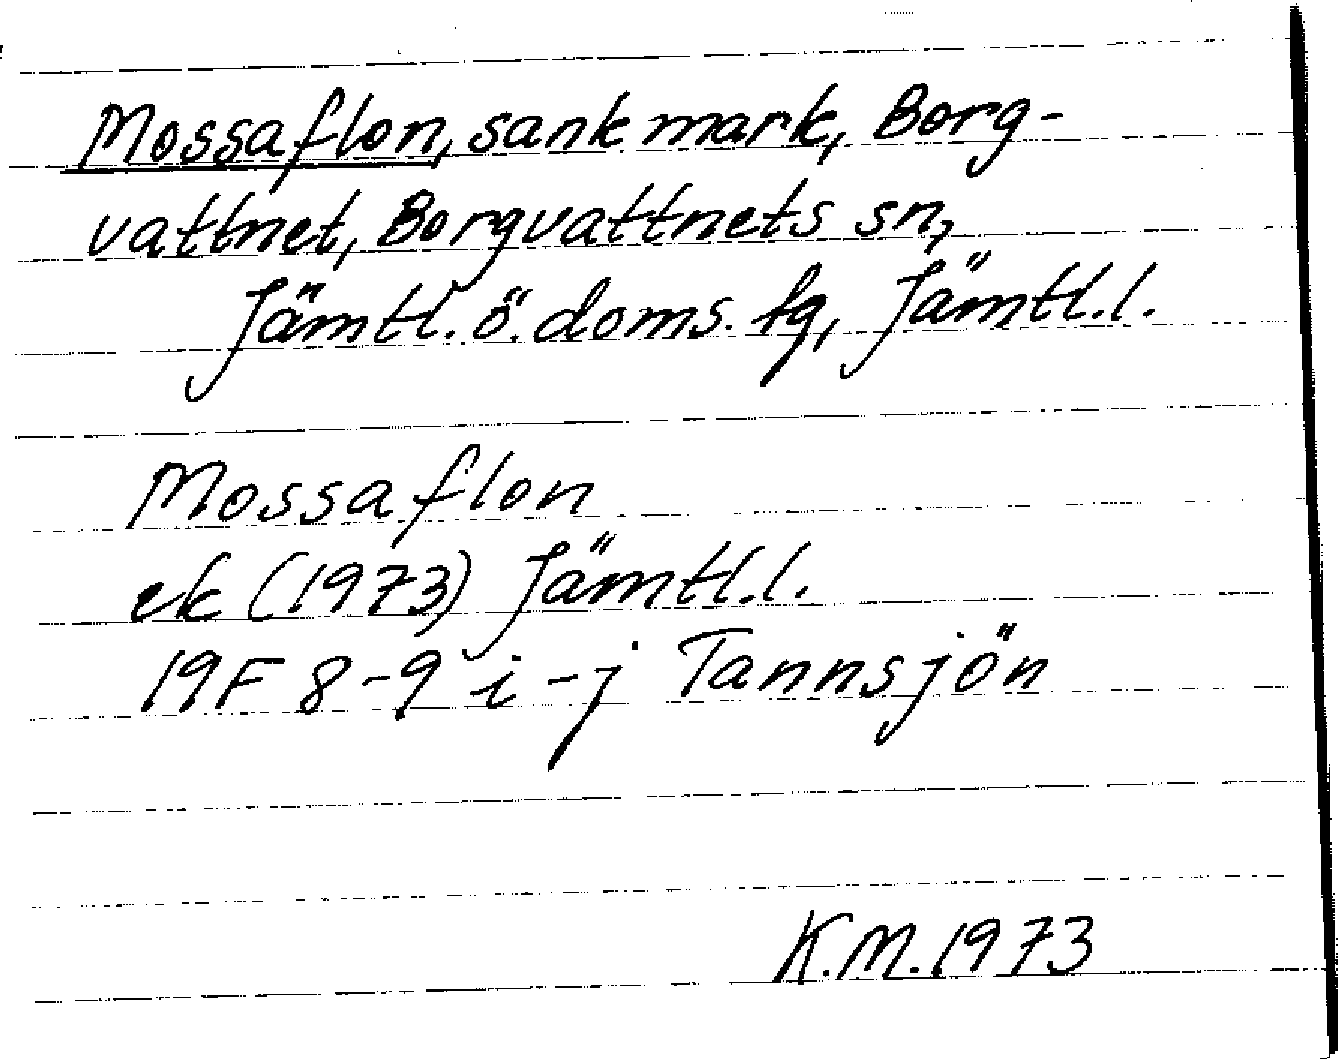 Mossaflon, sank mark, Borg-
vattnet, Borgvattnets sn,
Jämtl. ö. doms. fg, Jämtl. l.
Mossaflon
ek (1973) Jämtl. l.
19F 8-9 i-j Tannsjön
K.M. 1973